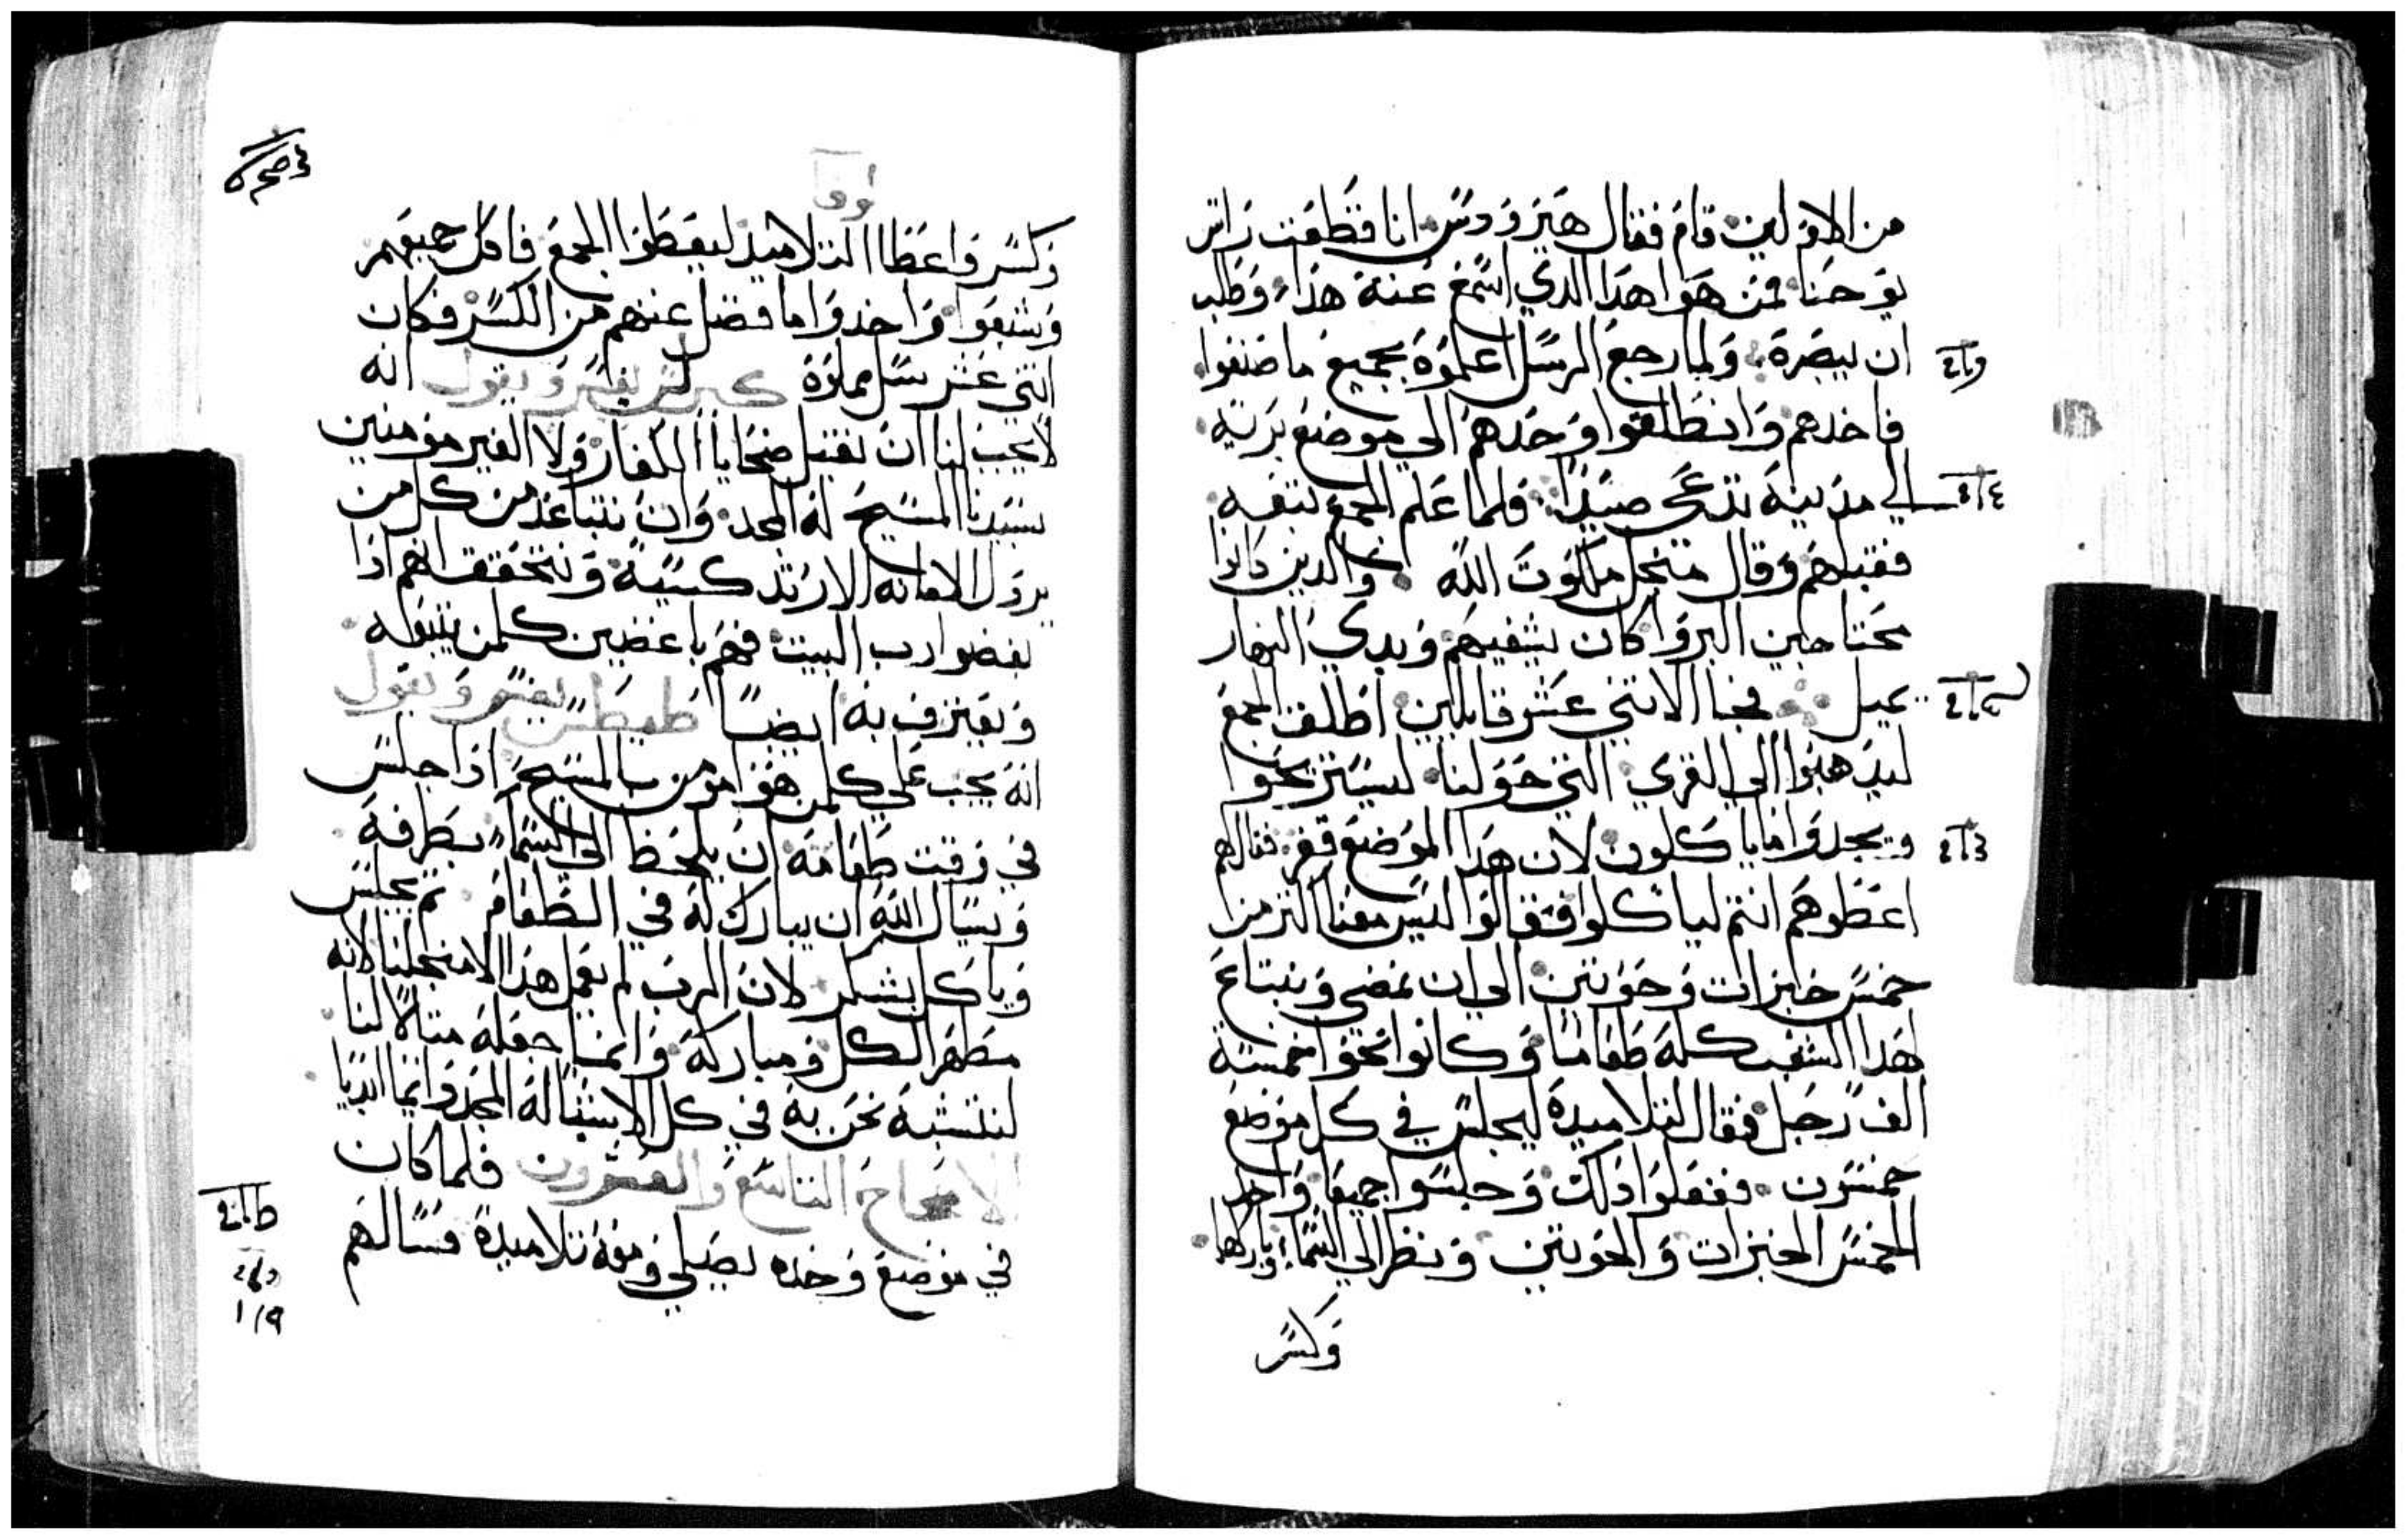 من الاولين قام فقال هيرودس انا قطعت راس
يوحنا فمن هوا هدا الدي اسمع عنه هذا وطلب
ان يبصره ولما رجع الرسل اعلموه بجميع ما صنعوا
فاخدهم وانطلقوا وحدهم الي موضع بريه
الي مدينة تدعي صيدا فلما علم الجمع تبعه
فقبلهم وقال متجل ملكوت الله والدين كانوا
محتاجين البروا كان يشفيهم وبدي النهار
يميل فجا الاتني عشر قايلين اطلق الجمع
ليدهبوا الي القري التي حولنا ليستريحوا
ويجدوا ما ياكلون لان هدا الموضع قفر فقال لهم
اعطوهم انتم لياكلوا فقالوا ليس معنا اكتر من
خمس خبزات وحوتين الي ان نمضي ونبتاع
لهدا الشعب كله طعاما وكانوا نحوا خمسة
الف رجل فقال لتلاميده ليجلس في كل موضع
خمسون ففعلوا دلك وجلسوا جميعا واخد
الخمس الخبزات والحوتين ونظر الي السماء وباركها
وكسر
لوقا
وكسر واعطا التلاميد ليعطوا الجمع فاكل جميعهم
وشبعوا واخدوا ما فضل عنهم من الكسر فكان
اتني عشر سل مملوة كيرلس يفسر ويقول انه
لا يجب لنا ان نقبل ضحايا الكفار ولا الغير مومنين
بسيدنا المسيح له المجد وان نتباعد من كل من
يردل الامانه الارتدكسية ونتحقق انهم اذا
بغضوا رب البيت فهم باغضين كلمن يتبعه
ويعترف به ايضا طيطس يفسر ويقول
انه يجب علي كلمن هوا مومن بالمسيح اذا جلس
في وقت طعامه ان يلحظ الي السماء بطرفه
ويسال الله ان يبارك له في الطعام تم يجلس
وياكل بشكر لان الرب لم يعمل هذا الا من اجلنا لانه
مطهر الكل ومباركه وانما جعله متالا لنا
لنتشبه نحن به في كل الاشيا له المجد دايما ابديا
الاصحاح التاسع والعشرون فلما كان
في موضع وحده يصلي ومعه تلاميدة فسالهم